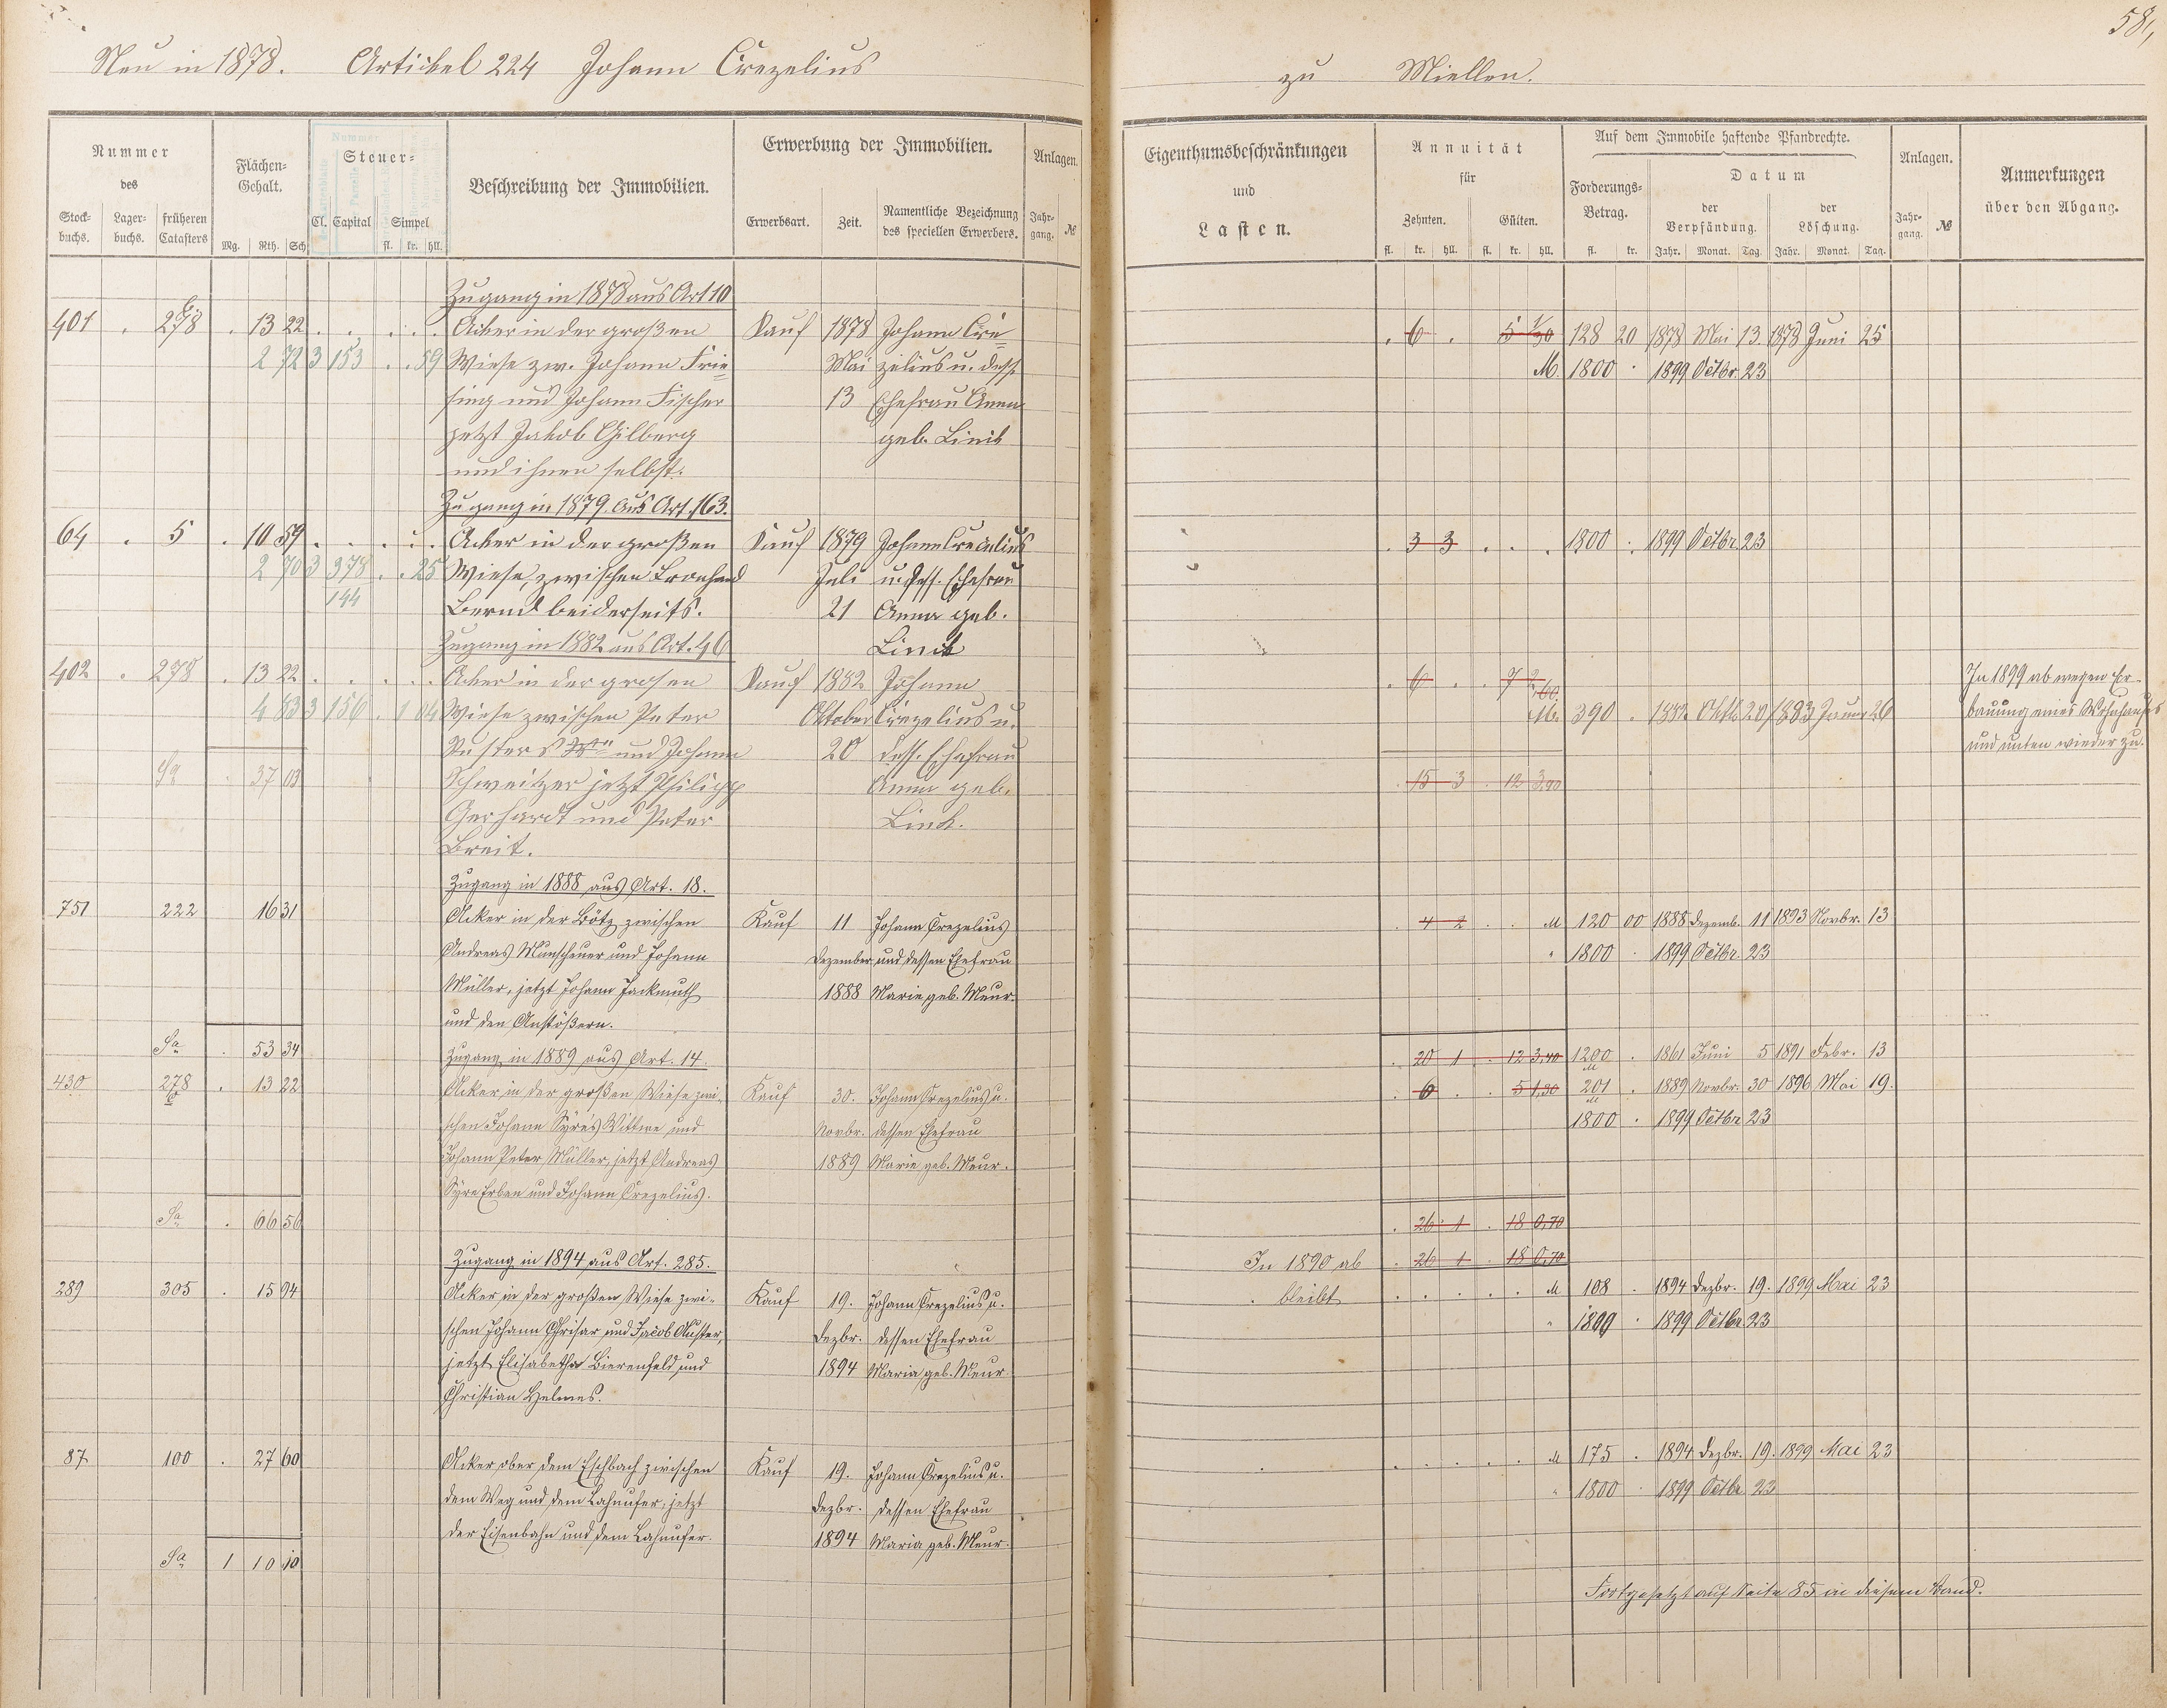 58,
Neu in 1878. Artickel 224 Johann Crezelius zu Miellen.
Nummer des
Stock-buchs. Lager-buchs. früheren Catasters
Flächen-Gehalt.
Mg. Rth. Sch.
Steuer-
Cl. Capital Simpel
fl. kr. hll.
Beschreibung der Immobilien.
Erwerbung der Immobilien.
Erwerbsart. Zeit. Namentliche Bezeichnung des speciellen Erwerbers.
Anlagen.
Jahr-gang. №
Eigenthumsbeschränkungen und Lasten.
Annuität für
Zehnten. Gülten.
fl. kr. hll. fl. kr. hll.
Auf dem Immobile haftende Pfandrechte.
Forderungs-Betrag.
fl. kr.
Datum
der Verpfändung. der Löschung.
Jahr. Monat. Tag. Jahr. Monat. Tag.
Anlagen.
Jahr-gang. №
Anmerkungen über den Abgang.
Zugang in 1878 aus Art 10
401 . 278 . 13 22 . . . . . Acker in der großen Kauf 1878 Johann Cre- . 6 . 128 20 1878 Mai 13. 1878 Juni 25
2 72 3 153 . . 59 Wiese zw. Johann Frie- Mai zelius u. dess. M. 1800 . 1899 Octbr. 23
sing und Johann Fischer 13 Ehefrau Anna
jetzt Jakob Gilberg geb. Linik
und ihnen selbst.
Zugang in 1879 aus Art. 163.
64 . 5 . 10 59 . . . . . Acker in der großen Kauf 1879 Johann Crezelius . 3 3 . . . 1800 . 1899 Octbr. 23
2 70 3 378 . . 25 Wiese, zwischen Juli u. dess. Ehefrau
144 Bernd beiderseits. 21 Anna geb.
Zugang in 1882 aus Art. 46 Linik
402 . 278 . 13 22 . . . . . Acker in der grosen Kauf 1882 Johann . 6 . . In 1899 ab wegen Er-
4 83 3 156 . 1 04 Wiese zwischen Peter Oktober Crezelius u. M. 390 . 1882 Oktb 20 1883 Januar 26 bauung eines Wohnhauses
und Johann 20 dess. Ehefrau und unten wieder zu.
Sa . 37 03 Schweitzer jetzt Philipp Anna geb. . 15 3 . 12 3,40
Gerhardt und Peter Linck.
Breit.
Zugang in 1888 aus Art. 18.
751 222 16 31 Acker in der Bötz zwischen Kauf 11 Johann Crezelius . 4 2 . . M 120 00 1888 Dezemb. 11 1893 Novbr. 13
Andreas Munscheuer und Johann Dezember und dessen Ehefrau " 1800 . 1899 Octbr. 23
Müller, jetzt Johann Packmuth 1888 Marie geb. Meur.
und den Anstößern.
Sa . 53 34 Zugang in 1889 aus Art. 14. . 20 1 . 12 3,40 1200 . 1861 Juni 5 1891 Febr. 13
430 278 . 13 22 Acker in der großen Wiese zwi- Kauf 30. Johann Crezelius u. . 6 . . 5 1,30 201 . 1889 Novbr. 30 1896 Mai 19.
schen Johann Syre's Wittwe und Novbr. dessen Ehefrau 1800 . 1899 Octbr. 23
Johann Peter Müller, jetzt Andreas 1889 Marie geb. Meur.
Syre Erben und Johann Crezelius.
Sa . 66 56 . 26 1 . 18 0,70
Zugang in 1894 aus Art. 285. In 1890 ab . 26 1 . 18 0,70
289 305 . 15 94 Acker in der großen Wiese zwi- Kauf 19. Johann Crezelius u. bleibt . . . . . . M 108 . 1894 Dezbr. 19. 1899 Mai 23
schen Johann Chrisar und Jacob Auster, Dezbr. dessen Ehefrau " 1800 . 1899 Octbr. 23
jetzt Elisabetha Bierenfeld und 1894 Maria geb. Meur
Christian Helmes.
87 100 . 27 60 Acker ober dem Eschbach zwischen Kauf 19. Johann Crezelius u. . . . . . . M 175 . 1894 Dezbr. 19. 1899 Mai 23
dem Weg und dem Lahnufer, jetzt Dezbr. dessen Ehefrau " 1800 . 1899 Octbr. 23
der Eisenbahn und dem Lahnufer. 1894 Maria geb. Meur.
Sa 1 10 10
Fortgesetzt auf Seite 85 in diesem Band.